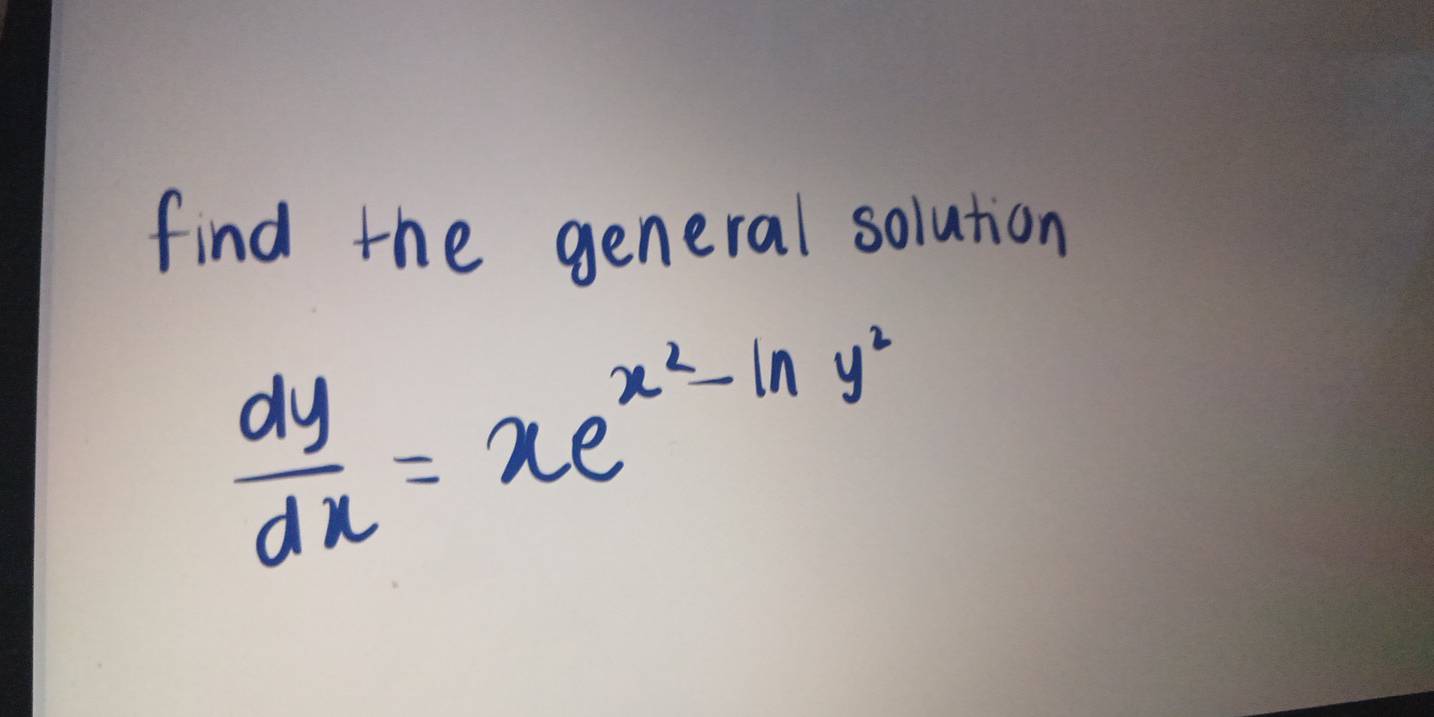 find the general solution
dy/dx = xe^(x² - ln y²)